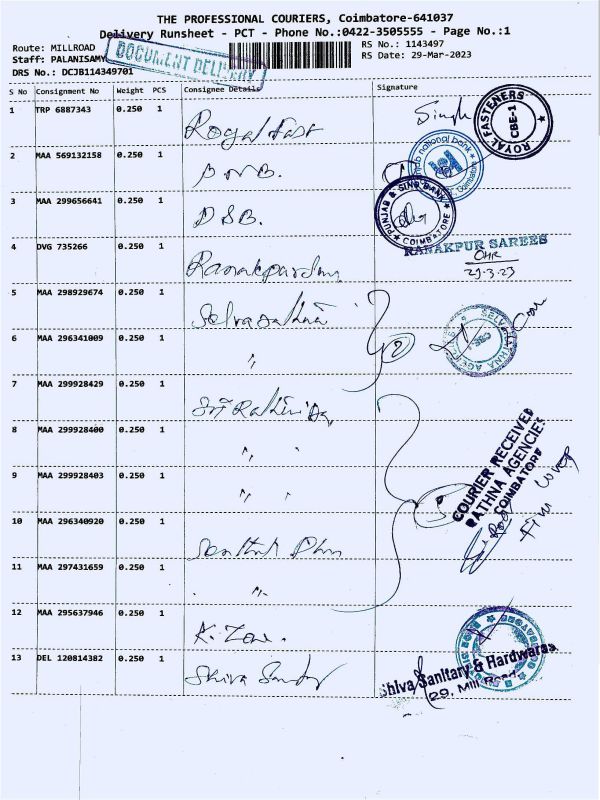 THE PROFESSIONAL COURIERS, Coimbatore-641037
Delivery Runsheet - PCT - Phone No.:0422-3505555 - Page No.:1
Route: MILLROAD
RS No.: 1143497
Staff: PALANISAMY
RS Date: 29-Mar-2023
DRS No.: DCJB114349701
DOCUMENT DELIVERY
S No Consignment No Weight PCS Consignee Details Signature
1 TRP 6887343 0.250 1 Royal Fast
Singh
ROYAL FASTENERS CBE-1
2 MAA 569132158 0.250 1 P.N.B.
national bank
Coimbatore
3 MAA 299656641 0.250 1 P S B.
PUNJAB & SIND BANK COIMBATORE
4 DVG 735266 0.250 1
RANAKPUR SAREES
29-3-23
5 MAA 298929674 0.250 1
6 MAA 296341009 0.250 1 "
2
7 MAA 299928429 0.250 1 Sri
8 MAA 299928400 0.250 1 " "
9 MAA 299928403 0.250 1 " "
COURIER RECEIVED
RATHNA AGENCIES
COIMBATORE
5
10 MAA 296340920 0.250 1
11 MAA 297431659 0.250 1 "
12 MAA 295637946 0.250 1 K. Zone.
13 DEL 120814382 0.250 1 Shiva
Shiva Sanitary & Hardwaras
29, Mill Road